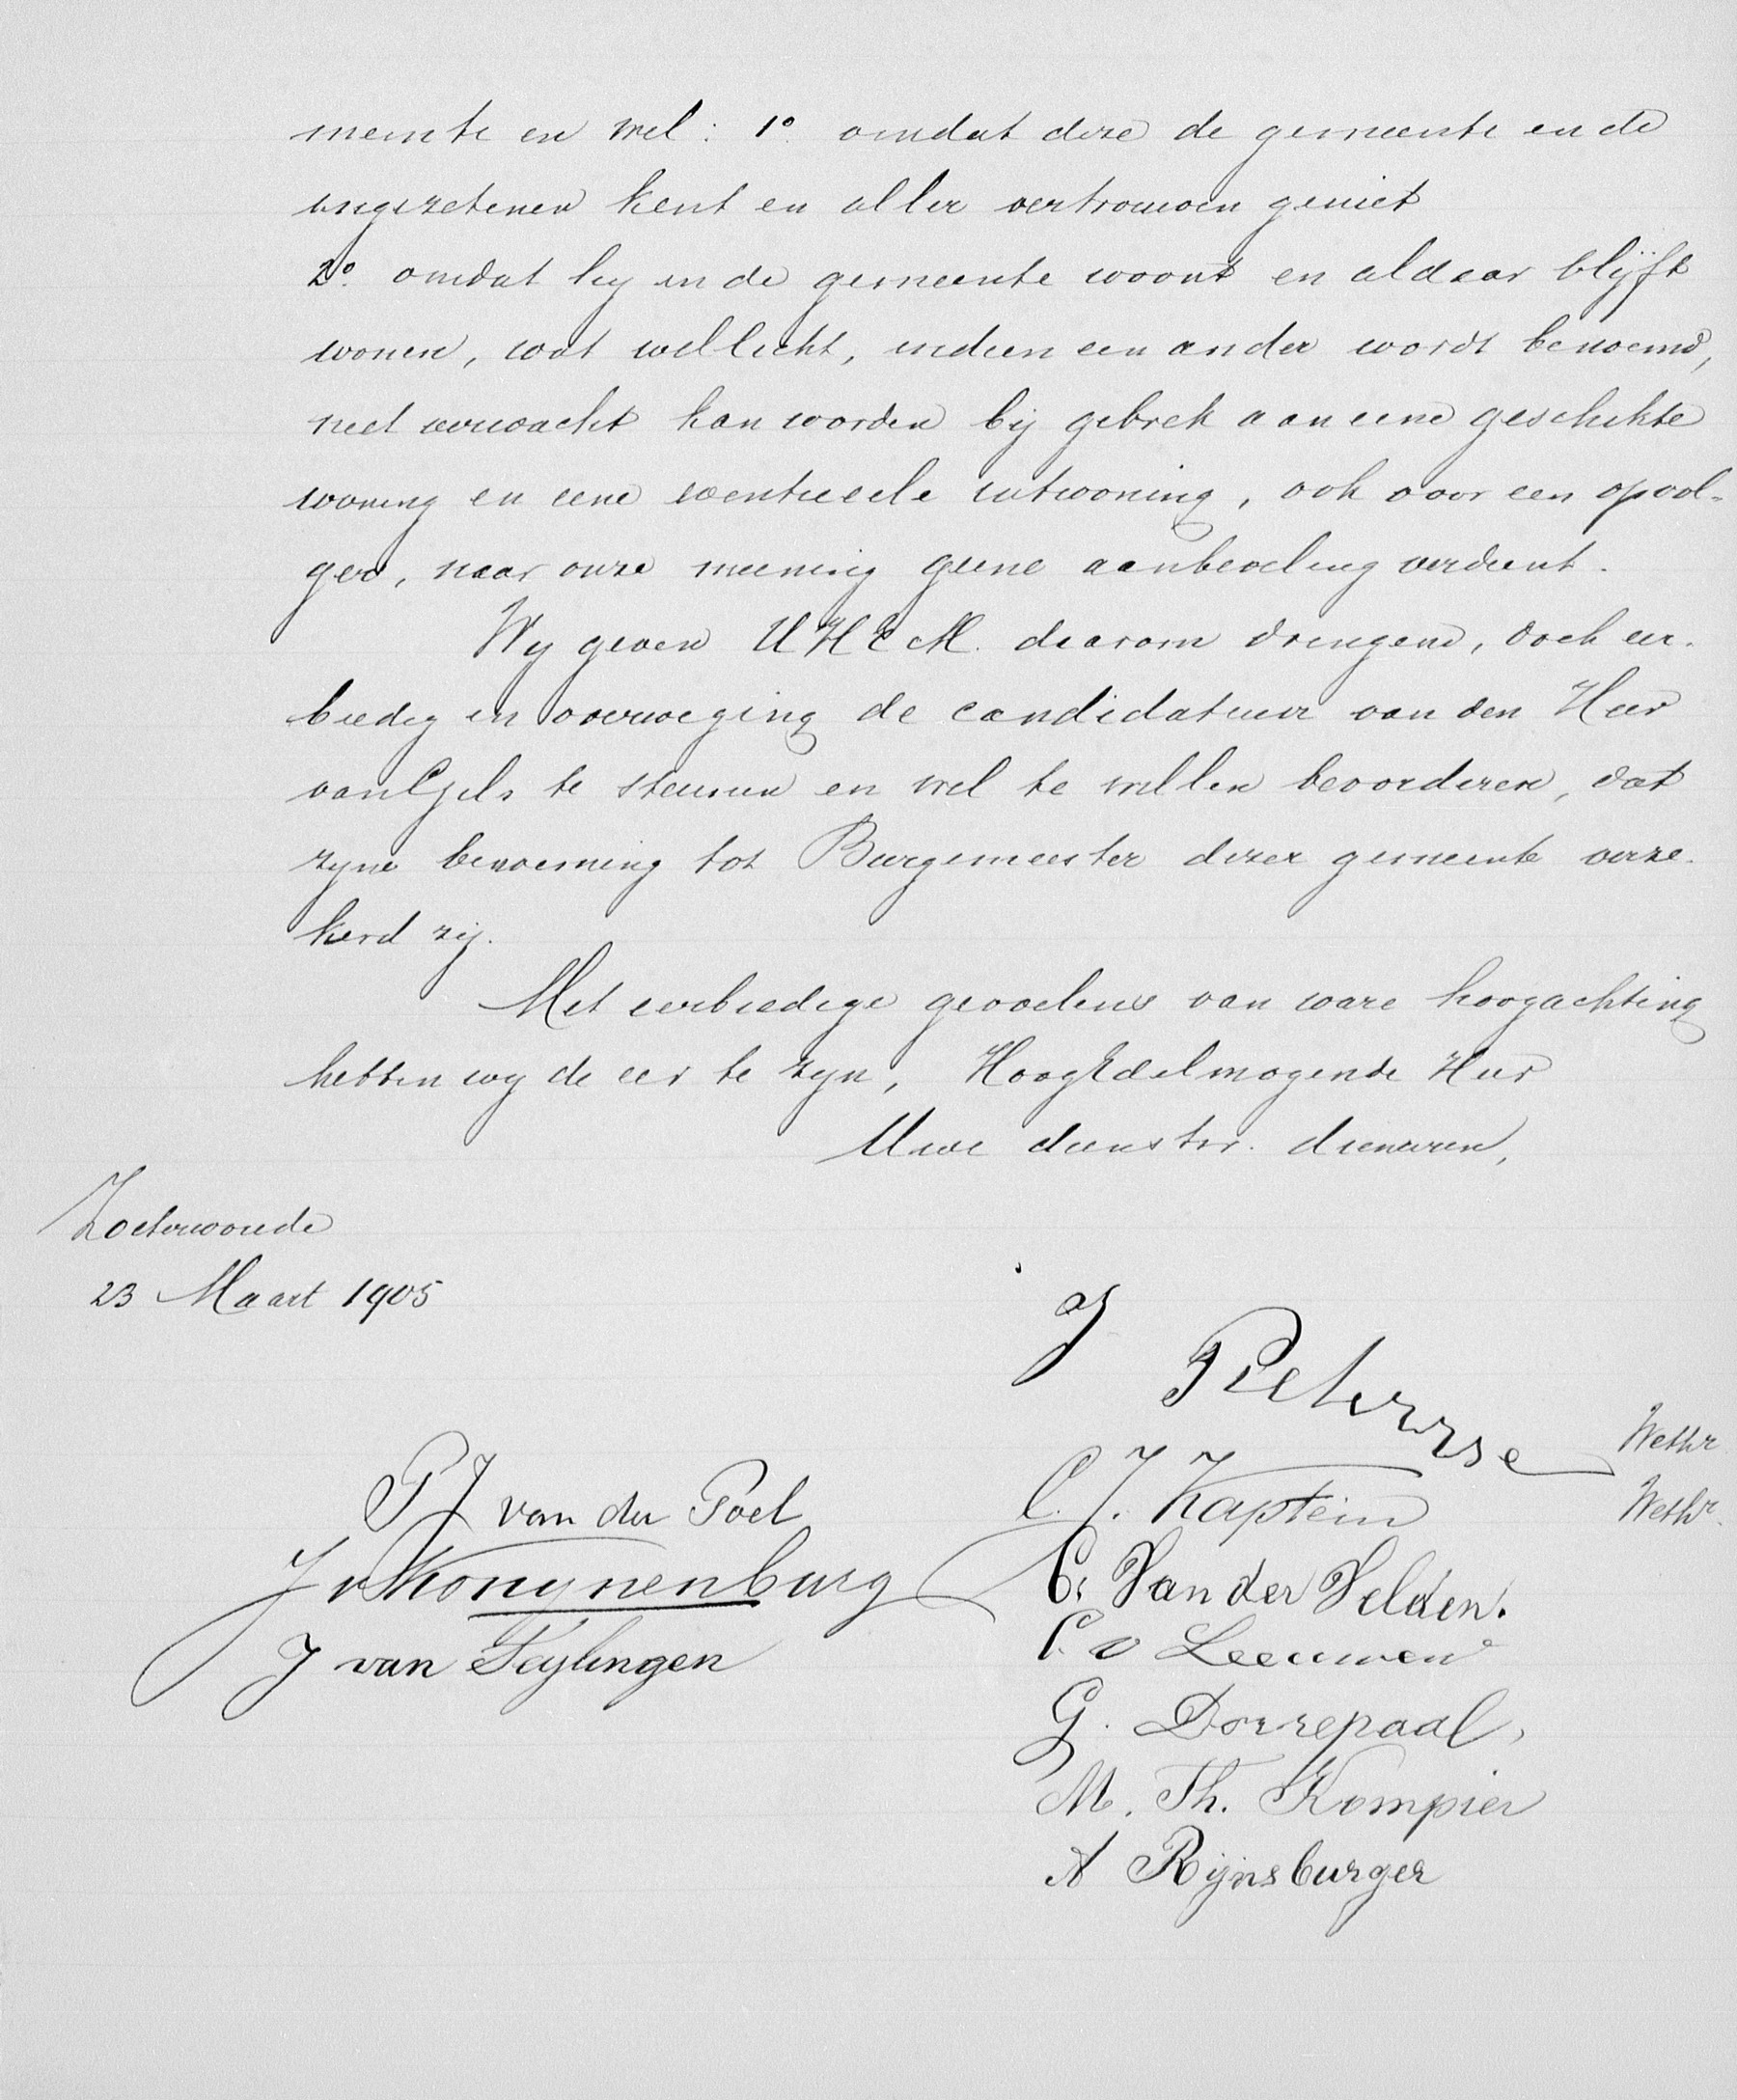 meente en wel: 1o. omdat deze de gemeente en de
ingezetenen kent en aller vertrouwen geniet
2o. omdat hy in de gemeente woont en aldaar blijft
wonen, wat wellicht, indien een ander wordt benoemd,
niet verwacht kan worden bij gebrek aan eene geschikte
woning en eene eventueele inwoning, ook voor een opvol-
ger, naar onze meening geene aanbeveling verdient.
Wy geven UHEM. daarom dringend, doch eer-
biedig in overweging de candidatuur van den Heer
van Egels te steunen en wel te willen bevorderen, dat
zyne benoeming tot Burgemeester dezer gemeente verze-
kerd zij.
Met eerbiedige gevoelens van ware hoogachting
hebben wy de eer te zyn, HoogEdelmogende Heer
Uwe dienstw. dienaren,
Zoeterwoude
23 Maart 1905
J Pieterse Wethr
P J van der Poel C. J. Kaptein Wethr.
J v Konynenburg C. Van der Velden.
J van Teylingen C. v Leeuwen
G. Dorrepaal,
M. Th. Kompier
A Rijnsburger